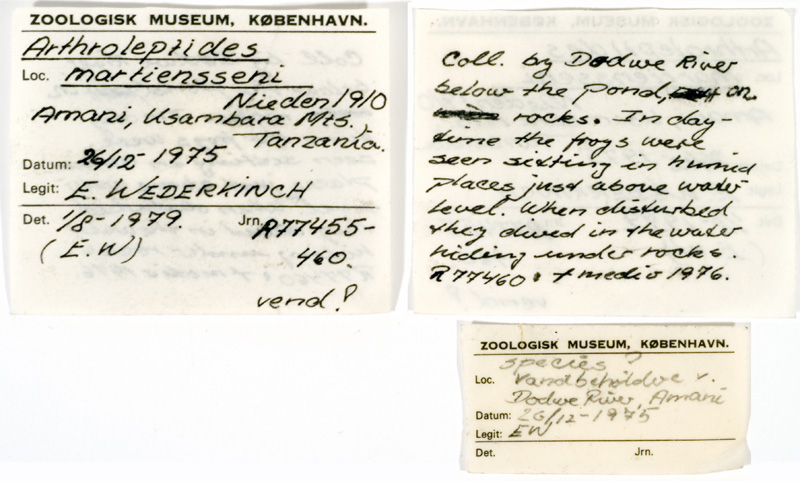 ZOOLOGISK MUSEUM, KØBENHAVN.
Arthroleptides
Loc. martiensseni
Nieden 1910
Amani, Usambara Mts.,
Tanzania.
Datum: 26/12-1975
Legit: E. WEDERKINCH
Det. 1/8-1979 Jrn. R77455-
(E.W) 460.
vend!
Coll. by Dodwe River
below the pond, on
rocks. In day-
time the frogs were
seen sitting in humid
places just above water
level. When disturbed
they dived in the water
hiding under rocks.
R77460: † medio 1976.
ZOOLOGISK MUSEUM, KØBENHAVN.
species?
Loc. Vandbeholdve v.
Dodwe River, Amani
Datum: 26/12-1975
Legit: EW
Det. Jrn.